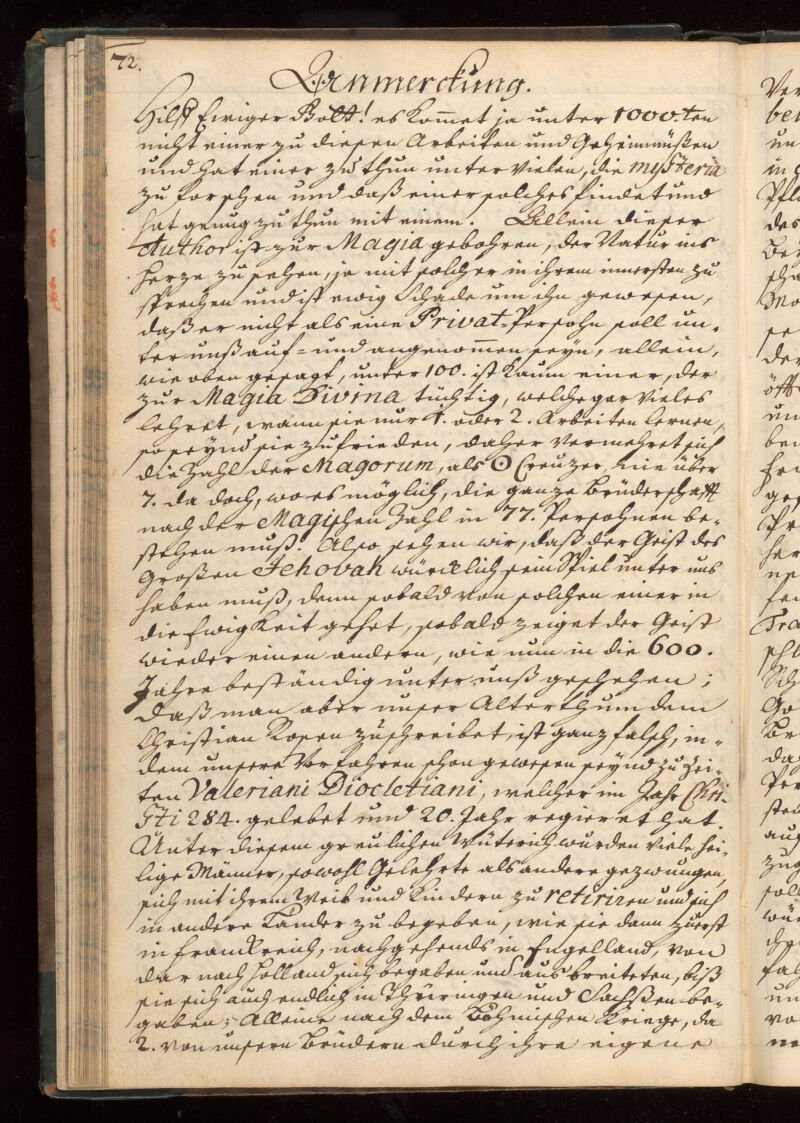 72.
Anmerckung.
Hilff Ewiger Gott! es kommet ja unter 1000.ten
nicht einer zu diesen Arbeiten und Geheimnüßen
und hat einer zu thun unter vielen, die mysteria
zu forschen und daß einer solches findet und
hat genug zu thun mit einem. Allein dieser
Author ist zur Magia gebohren, der Natur ins
Herze zu sehen, ja mit solcher in ihrem innersten zu
sprechen und ist ewig Schade um ihn gewesen,
daß er nicht als eine Privat-Persohn soll un-
ter unß auf- und angenommen seyn, allein,
wie oben gesagt, unter 100. ist kaum einer, der
zur Magia Divina tüchtig, welche gar vieles
lehret, wann sie nur 1. oder 2. Arbeiten lernen,
so seynd sie zufrieden, daher vermehret sich
die Zahl der Magorum, als ☉ Creuzer, nie über
7. da doch, wo es möglich, die ganze Brüderschafft
nach der Magischen Zahl in 77. Persohnen be-
stehen muß. Also sehen wir, daß der Geist des
Großen Jehovah würcklich sein Spiel unter uns
haben muß, denn sobald von solchen einer in
die Ewigkeit gehet, sobald zeiget der Geist
wieder einen andern, wie nun in die 600.
Jahre beständig unter unß geschehen;
Daß man aber unser Alterthum dem
Christian Rosen zuschreibet, ist ganz falsch, in-
dem unsere Vorfahren schon gewesen seynd zu Zei-
ten Valeriani Diocletiani, welcher im Jahr Chri-
sti 284. gelebet und 20. Jahr regieret hat.
Unter diesem greulichen Wüterich wurden viele hei-
lige Männer, sowohl Gelehrte als andere gezwungen,
sich mit ihrem Weib und Kindern zu retiriren und sich
in andere Länder zu begeben, wie sie dann zuerst
in Franckreich, nachgehends in Engelland, von
dar nach Holland sich begaben und ausbreiteten, biß
sie sich auch endlich in Thüringen und Sachßen be-
gaben; Alleine nach dem Böhmischen Kriege, da
2. von unsern Brüdern durch ihre eigene